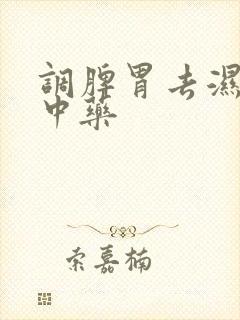 調脾胃去濕
中藥
索嘉楠